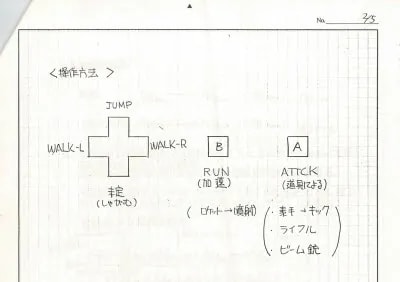 No. 3/5
<操作方法>
JUMP
WALK-L
WALK-R
B
A
RUN
(加速)
ATTCK
(道具による)
(しゃがむ)
(ロケット→噴射)
・素手→キック
・ライフル
・ビーム銃